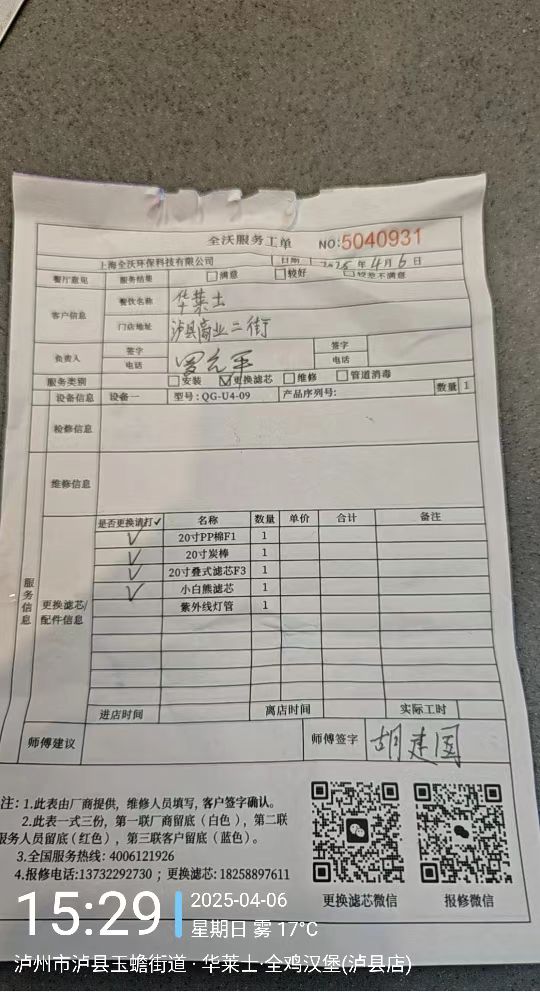 全沃服务工单 NO:5040931
上海全沃环保科技有限公司 日期 2025年4月6日
餐厅意见 服务结果 满意 较好 较差不满意
客户信息 餐饮名称 华莱士
门店地址 泸县商业二街
负责人 签字 电话 签字 电话
服务类别 安装 更换滤芯 维修 管道消毒
设备信息 设备一 型号:QG-U4-09 产品序列号: 数量 1
检修信息
维修信息
服务信息
更换滤芯/配件信息
是否更换请打✓ 名称 数量 单价 合计 备注
✓ 20寸PP棉F1 1
✓ 20寸炭棒 1
✓ 20寸叠式滤芯F3 1
✓ 小白熊滤芯 1
紫外线灯管 1
进店时间 离店时间 实际工时
师傅建议 师傅签字 胡建国
注：1.此表由厂商提供，维修人员填写，客户签字确认。
2.此表一式三份，第一联厂商留底（白色），第二联
服务人员留底（红色），第三联客户留底（蓝色）。
3.全国服务热线：4006121926
4.报修电话:13732292730；更换滤芯:18258897611
更换滤芯微信 报修微信
15:29 2025-04-06
星期日 雾 17℃
泸州市泸县玉蟾街道·华莱士·全鸡汉堡(泸县店)